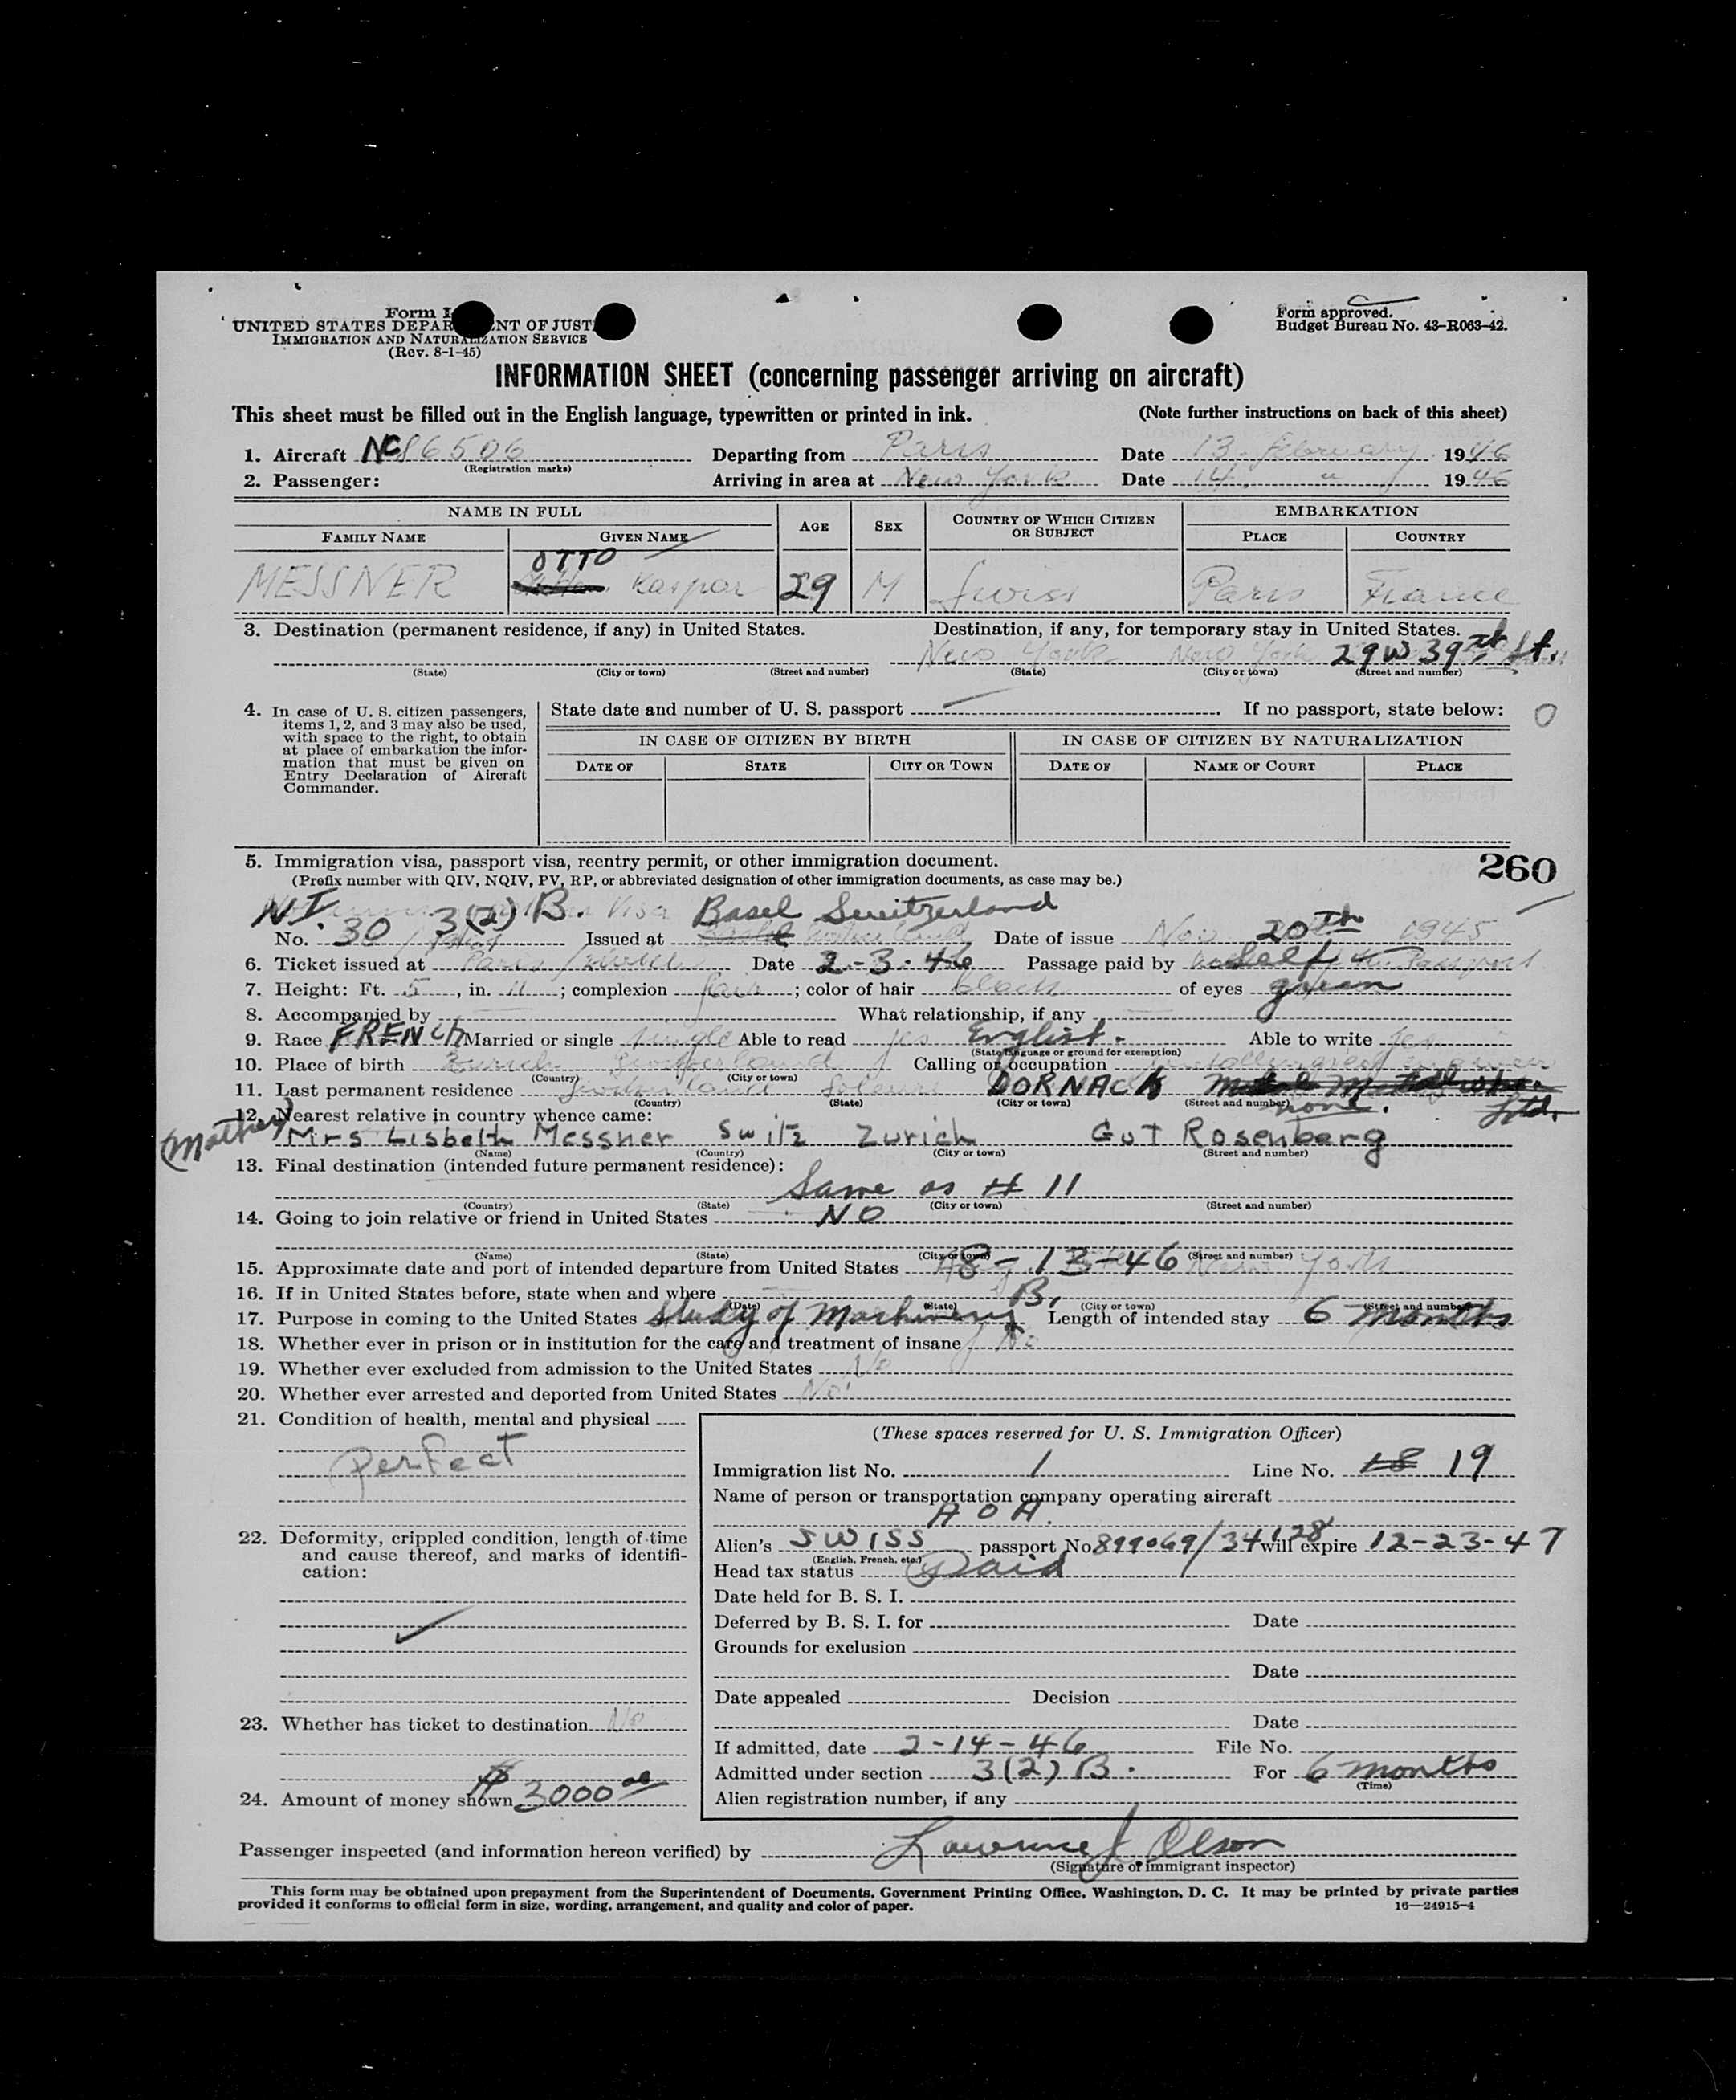 Form I
UNITED STATES DEPAR ENT OF JUST
IMMIGRATION AND NATURALIZATION SERVICE
(Rev. 8-1-45)
Form approved.
Budget Bureau No. 43-R063-42.
INFORMATION SHEET (concerning passenger arriving on aircraft)
This sheet must be filled out in the English language, typewritten or printed in ink. (Note further instructions on back of this sheet)
1. Aircraft NC86506 Departing from Paris Date 13. February 1946
(Registration marks)
2. Passenger: Arriving in area at New York Date 14. " 1946
NAME IN FULL AGE SEX COUNTRY OF WHICH CITIZEN OR SUBJECT EMBARKATION
FAMILY NAME GIVEN NAME PLACE COUNTRY
OTTO
MESSNER Kaspar 29 M Swiss Paris France
3. Destination (permanent residence, if any) in United States. Destination, if any, for temporary stay in United States.
New York New York 29 W 39th St.
(State) (City or town) (Street and number) (State) (City or town) (Street and number)
4. In case of U. S. citizen passengers, items 1, 2, and 3 may also be used, with space to the right, to obtain at place of embarkation the information that must be given on Entry Declaration of Aircraft Commander.
State date and number of U. S. passport — . If no passport, state below: 0
IN CASE OF CITIZEN BY BIRTH IN CASE OF CITIZEN BY NATURALIZATION
DATE OF STATE CITY OR TOWN DATE OF NAME OF COURT PLACE
5. Immigration visa, passport visa, reentry permit, or other immigration document. 260
(Prefix number with QIV, NQIV, PV, RP, or abbreviated designation of other immigration documents, as case may be.)
N.I. 3(2) B. Visa Basel Switzerland
No. 30 Issued at Date of issue Nov 20th 1945
6. Ticket issued at Paris Date 2-3-46 Passage paid by Self
7. Height: Ft. 5, in. 11; complexion fair; color of hair black of eyes green
8. Accompanied by — What relationship, if any —
9. Race FRENCH Married or single single Able to read yes English. Able to write yes
(State language or ground for exemption)
10. Place of birth Zurich Switzerland Calling or occupation metallurgical engineer
(Country) (City or town)
11. Last permanent residence Switzerland Soleure DORNACK none. Ltd.
(Country) (State) (City or town) (Street and number)
12. Nearest relative in country whence came:
(Mother) Mrs Lisbeth Messner Switz Zurich Gut Rosenberg
(Name) (Country) (City or town) (Street and number)
13. Final destination (intended future permanent residence):
Same as # 11
(Country) (State) (City or town) (Street and number)
14. Going to join relative or friend in United States NO
(Name) (State) (City or town) (Street and number)
15. Approximate date and port of intended departure from United States 8-13-46 New York
16. If in United States before, state when and where —
(Date) (State) (City or town) (Street and number)
17. Purpose in coming to the United States Study of Machinery B. Length of intended stay 6 months
18. Whether ever in prison or in institution for the care and treatment of insane No
19. Whether ever excluded from admission to the United States No
20. Whether ever arrested and deported from United States No
21. Condition of health, mental and physical
Perfect
22. Deformity, crippled condition, length of time and cause thereof, and marks of identification:
✓
23. Whether has ticket to destination No
24. Amount of money shown $3000 00
(These spaces reserved for U. S. Immigration Officer)
Immigration list No. 1 Line No. 18 19
Name of person or transportation company operating aircraft
A O A.
Alien's SWISS passport No. 899069/34128 will expire 12-23-47
(English, French, etc.)
Head tax status Paid
Date held for B. S. I.
Deferred by B. S. I. for Date
Grounds for exclusion
Date
Date appealed Decision
Date
If admitted, date 2-14-46 File No.
Admitted under section 3(2) B. For 6 months
(Time)
Alien registration number, if any
Passenger inspected (and information hereon verified) by Lawrence J Olson
(Signature of immigrant inspector)
This form may be obtained upon prepayment from the Superintendent of Documents, Government Printing Office, Washington, D. C. It may be printed by private parties
provided it conforms to official form in size, wording, arrangement, and quality and color of paper. 16—24915-4